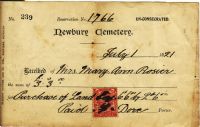 No. 239 Reservation No. 1766 UN-CONSECRATED.
Newbury Cemetery.
July 1 1921
Received of Mrs. Mary Ann Rosier
the sum of £3. 3s.
Purchase of Land 6ft 6 by 2ft 6
Paid Dove